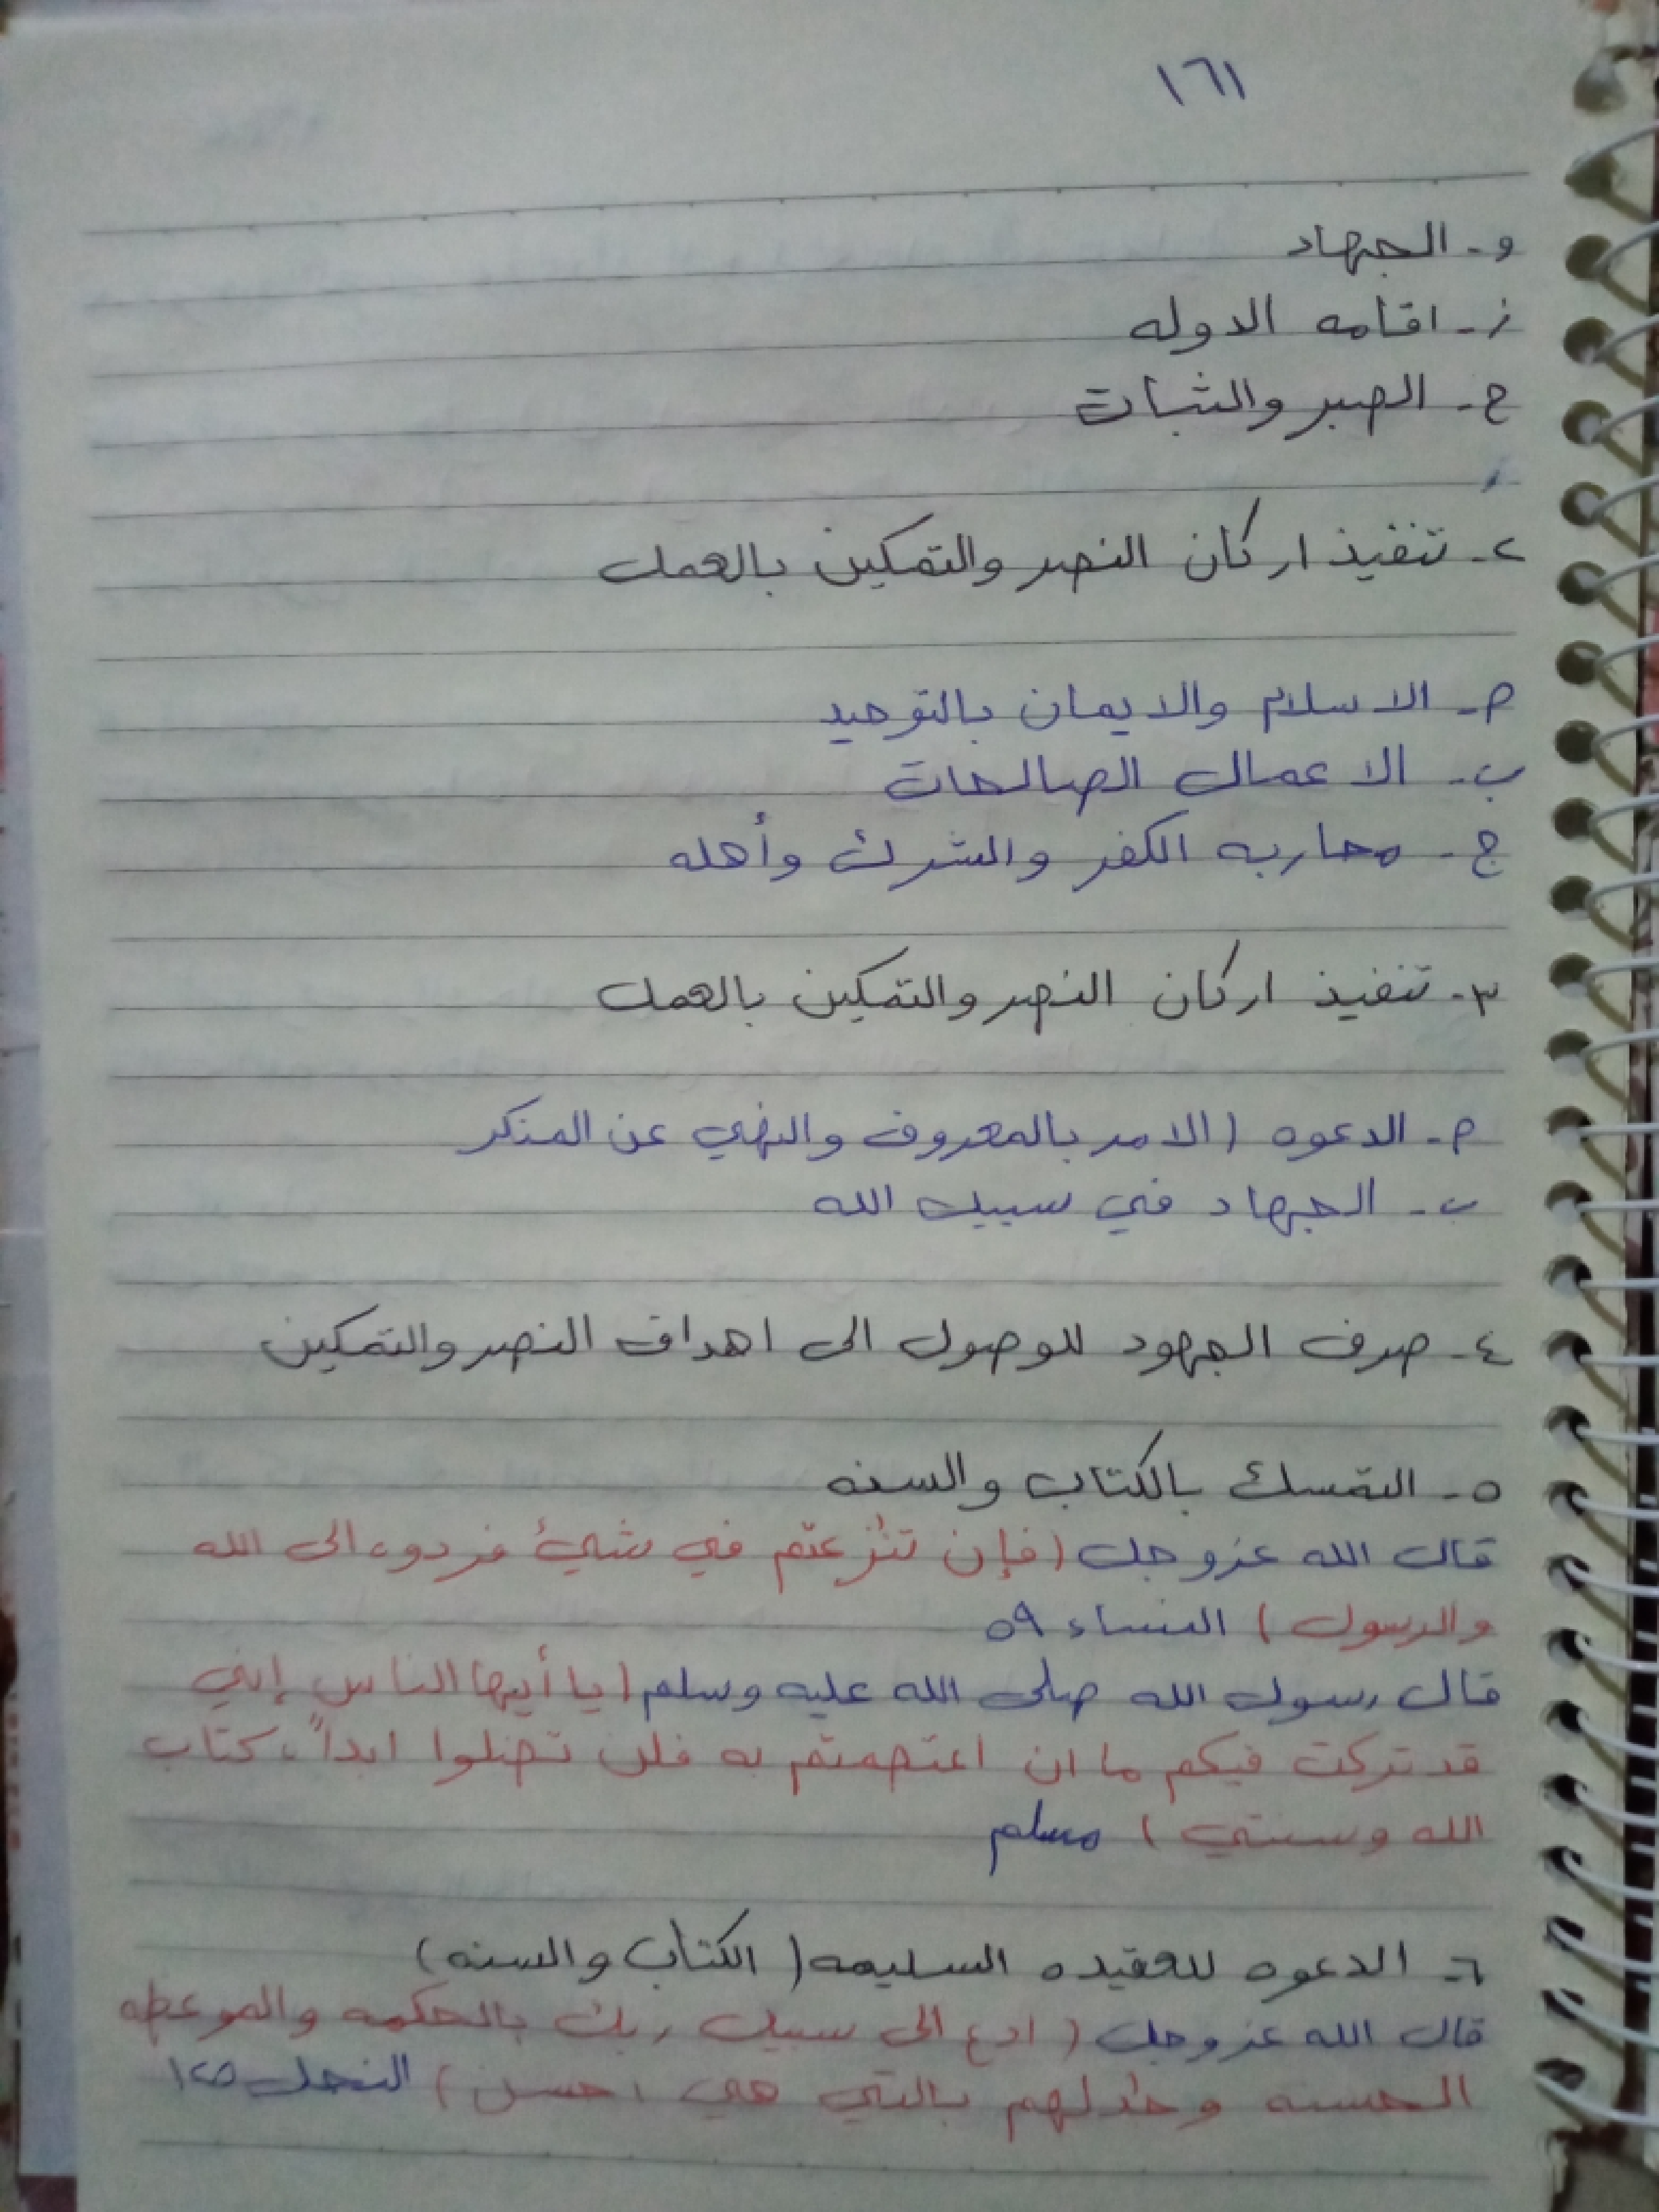 ١٦١
و- الجهاد
ز- اقامه الدوله
ح- الصبر والثبات
٢- تنفيذ اركان النصر والتمكين بالعمل
م- الاسلام والايمان بالتوحيد
ب- الاعمال الصالحات
ج- محاربه الكفر والشرك وأهله
٣- تنفيذ اركان النصر والتمكين بالعمل
م- الدعوه (الامر بالمعروف والنهي عن المنكر
ب- الجهاد في سبيل الله
٤- صرف الجهود للوصول الى اهداف النصر والتمكين
٥- التمسك بالكتاب والسنه
قال الله عزوجل (فإن تنٰزعتم في شيءٍ فردوه الى الله
والرسول) النساء ٥٩
قال رسول الله صلى الله عليه وسلم (يا أيها الناس إني
قد تركت فيكم ما ان اعتصمتم به فلن تضلوا ابداً، كتاب
الله وسنتي) مسلم
٦- الدعوه للعقيده السليمه (الكتاب والسنه)
قال الله عزوجل (ادع الى سبيل ربك بالحكمه والموعظه
الحسنه وجٰدلهم بالتي هي احسن) النحل ١٢٥